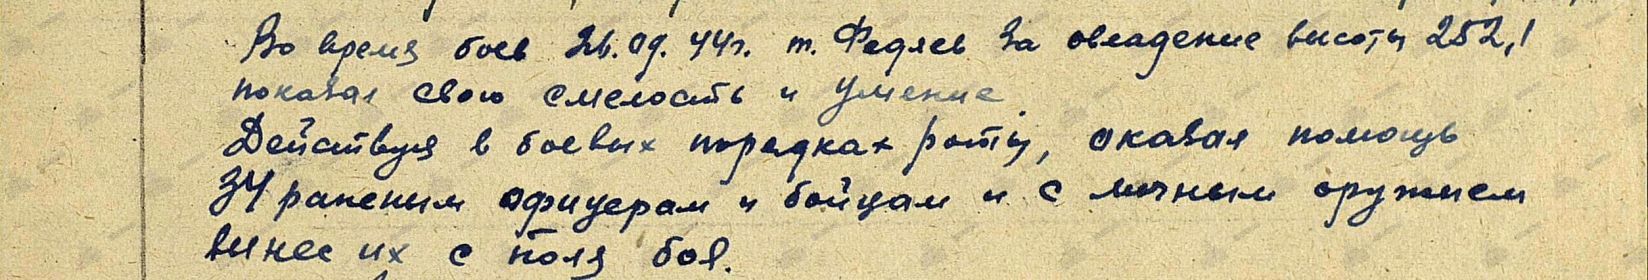 Во время боев 26.09.44г. т. Федяев за овладение высоты 252,1
показал свою смелость и умение
Действуя в боевых порядках роты, оказал помощь
34 раненым офицерам и бойцам и с личным оружием
вынес их с поля боя.